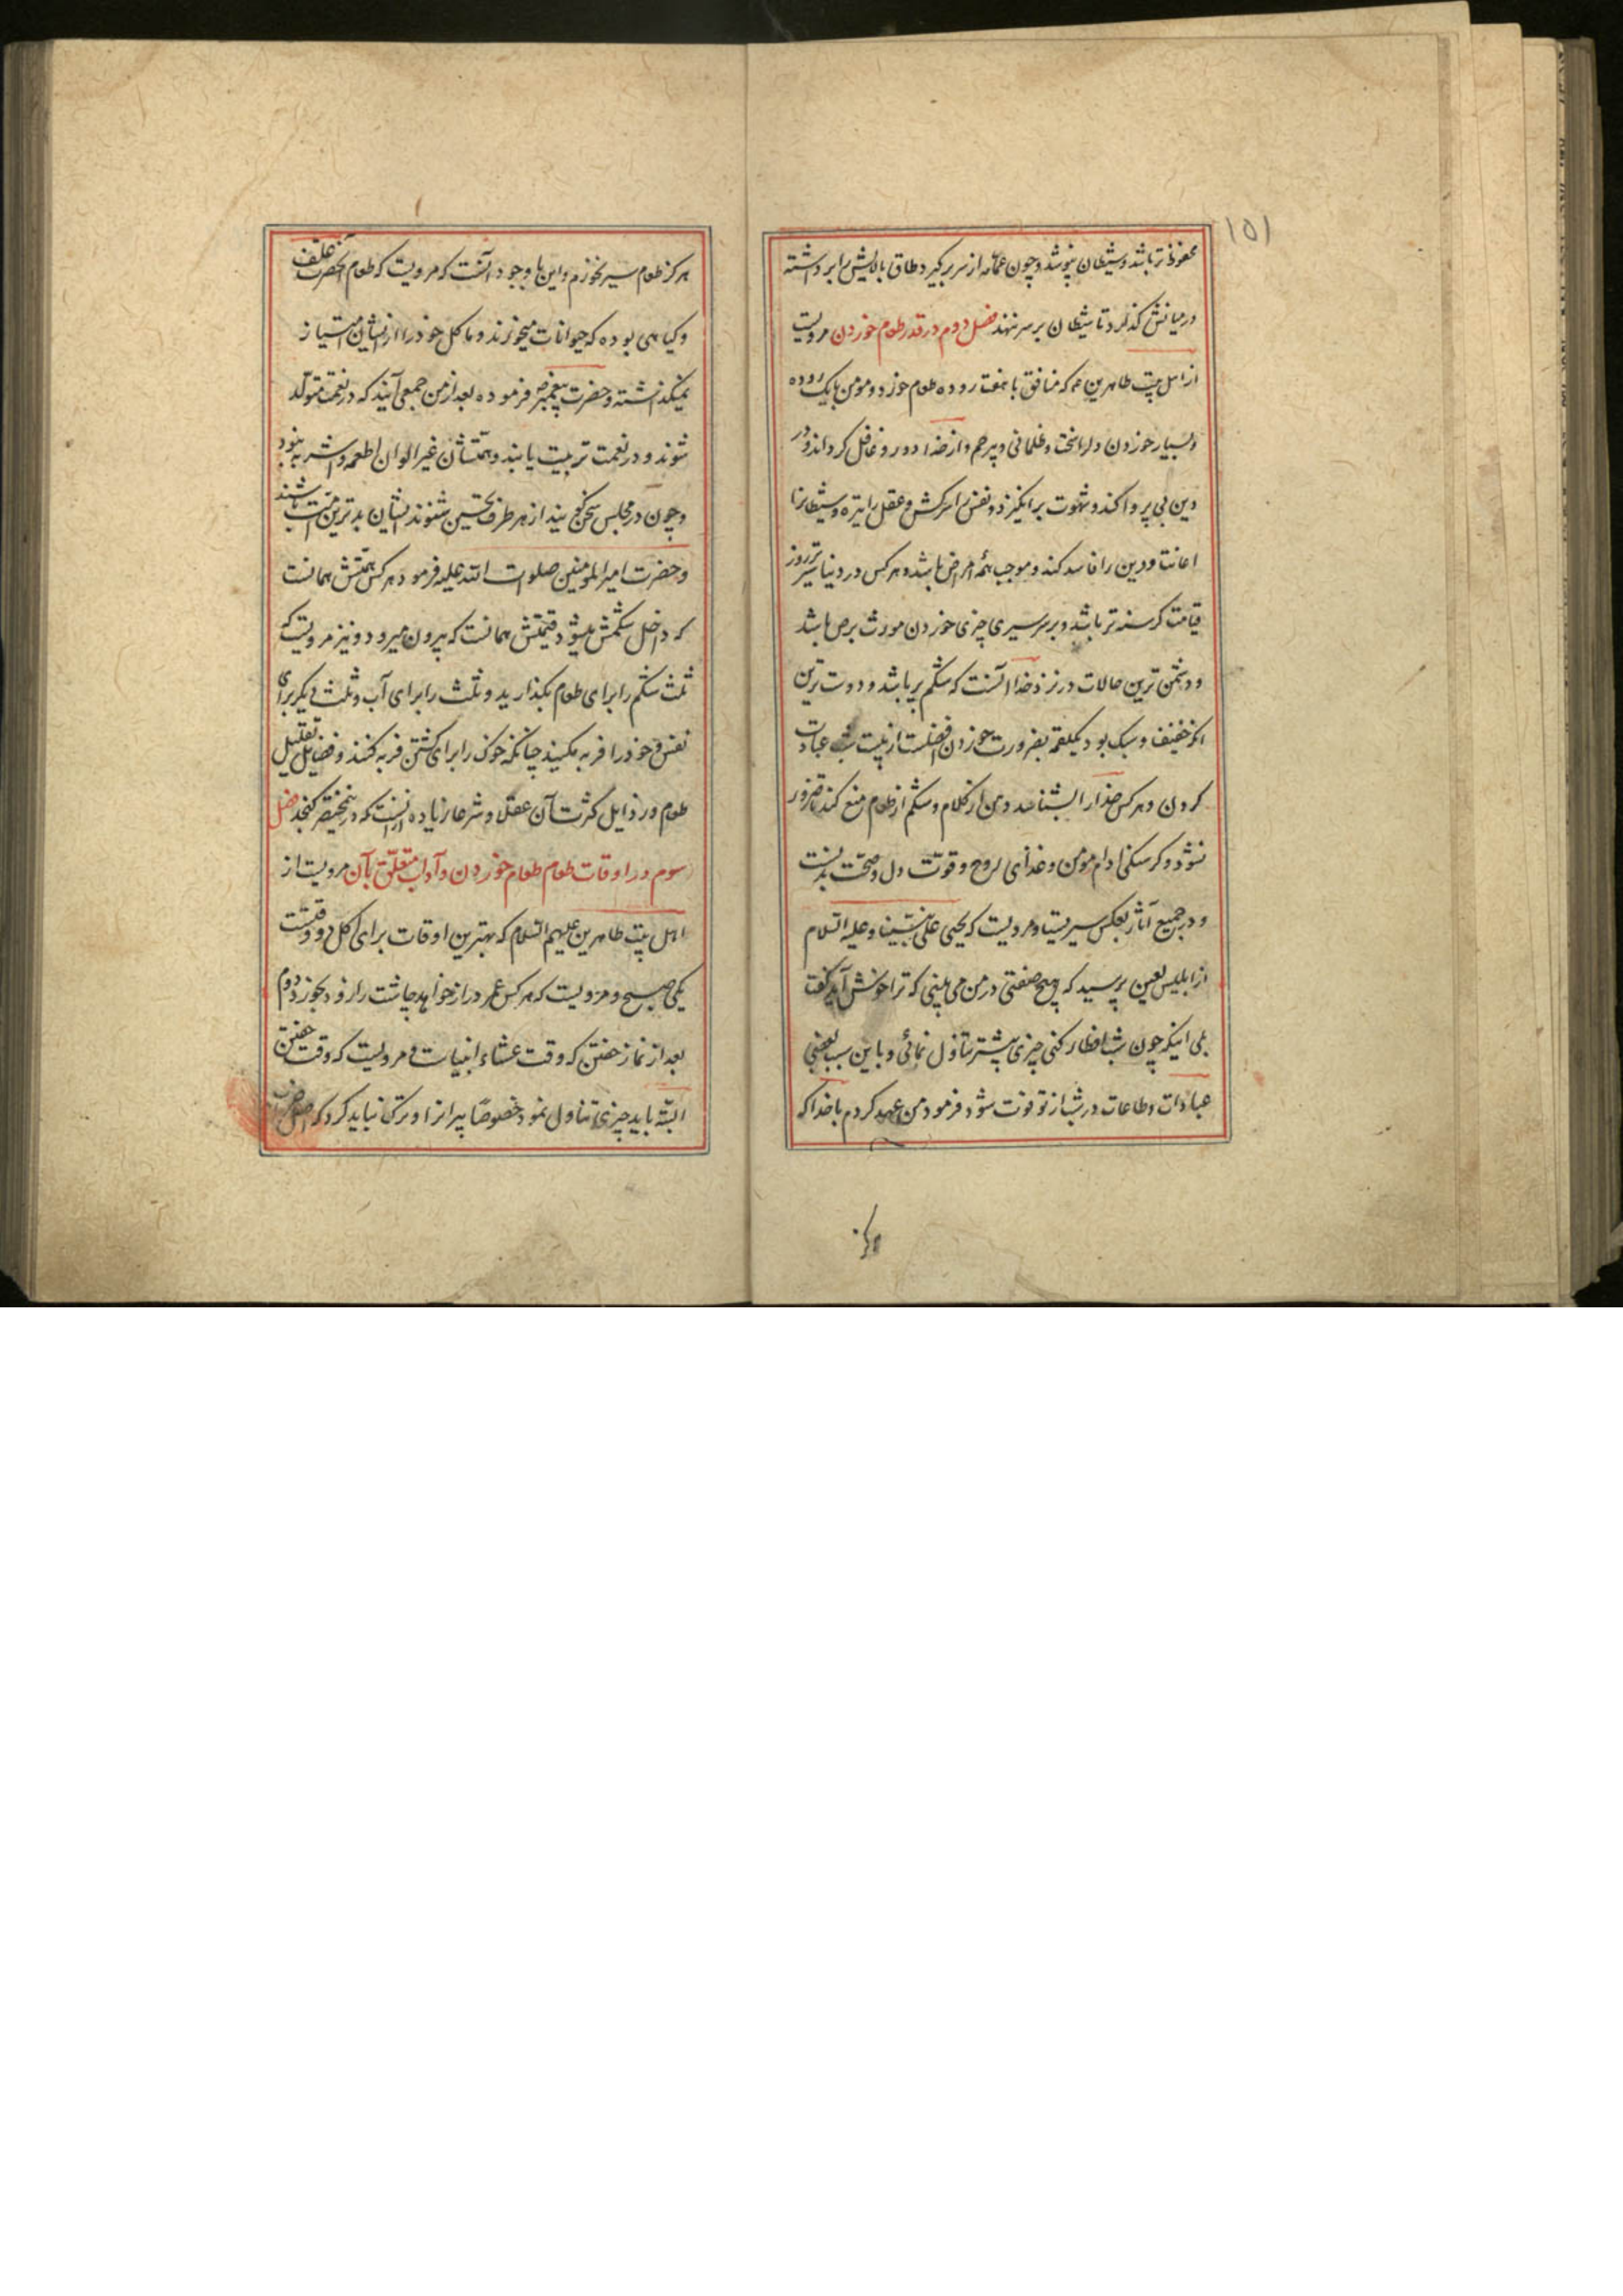 ۱۵۱
محفوظ تر باشد و شیطان نپوشد و چون عمامه از سر بر گیرد طاق بالایش را برداشته
در میانش گذارد تا شیطان بر سر ننهد فصل دوم در قدر طعام خوردن مرویست
از اهل بیت طاهرین ع که منافق با هفت روده طعام خورد و مومن با یک روده
و بسیار خوردن دل را سخت و ظلمانی و بیرحم و از خدا دور و غافل کرداند و در
دین بی پروا کند و شهوت برانکیزد و نفس را سرکش و عقل را تیره و شیطانرا
اعانت و دین را فاسد کند و موجب همه امراض باشد و هر کس در دنیا سیرتر روز
قیامت کرسنه تر باشد و بر سر سیری چیزی خوردن مورث برص باشد
و دشمن ترین حالات در نزد خدا آنست که شکم پر باشد و دوست ترین
انکه خفیف و سبک بود و یکلقمه بضرورت خوردن افضلست از بیست شب عبادت
کردن و هر کس خدا را بشناسد دهن از کلام و شکم از طعام منع کند تا ضرور
نشود و کرسنکی ادام مومن و غذای روح و قوت دل و صحت بدنست
و در جمیع آثار بعکس سیریست و مرویست که یحیی علی نبینا و علیه السلام
از ابلیس لعین پرسید که هیچ صفتی در من می بینی که ترا خوش آید گفت
بلی اینکه چون شب افطار کنی چیزی بیشتر تناول نمائی و باین سبب بعضی
عبادات و طاعات در شب از تو فوت شود فرمود من عهد کردم با خدا که
هرکز
هرکز طعام سیر نخورم و این با وجود آنست که مرویست که طعام آنحضرت علف
و کیاهی بوده که حیوانات میخورند و ماکل خود را از ایشان امتیاز
نمیکذاشته و حضرت پیغمبر ص فرموده بعد از من جمعی آیند که در نعمت متولد
شوند و در نعمت تربیت یابند و همتشان غیر الوان اطعمه و اشربه نبود
و چون در مجلس سخن کویند از هر طرف تحسین شنوند ایشان بدترین امت باشند
و حضرت امیر المومنین صلوات الله علیه فرمود هر کس همتش همانست
که داخل شکمش میشود قیمتش همانست که بیرون میرود و نیز مرویست که
ثلث شکم را برای طعام بکذارید و ثلث را برای آب و ثلث دیکر برای
نفس و خود را فربه مکنید چنانکه خوک را برای کشتن فربه کنند و فضایل تقلیل
طعام و رذایل کثرت آن عقلا و شرعا زیاده از انست که در مختصر کنجد فصل
سوم در اوقات طعام طعام خوردن و آداب متعلق بآن مرویست از
اهل بیت طاهرین علیهم السلام که بهترین اوقات برای اکل دو وقتست
یکی صبح و مرویست که هر کس عمر دراز خواهد چاشت را زود بخورد دوم
بعد از نماز خفتن که وقت عشاء انبیاست و مرویست که وقت خفتن
البته باید چیزی تناول نمود خصوصا پیرانرا و ترک نباید کرد که